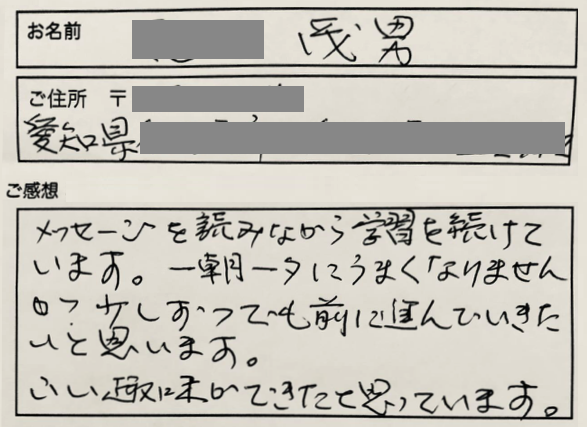 お名前 茂男
ご住所 〒
愛知県
ご感想
メッセージを読みながら学習を続けて
います。一朝一夕にうまくなりません
が少しずつでも前に進んでいきた
いと思います。
いい趣味ができたと思っています。